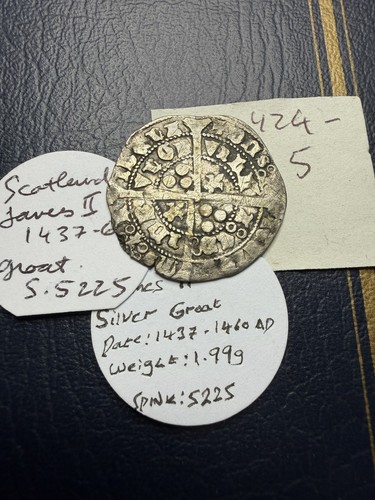 424-
5
Scotland
James II
1437-6
Groat
S.5225
Silver Groat
Date: 1437-1460 AD
Weight: 1.99g
Spink: 5225